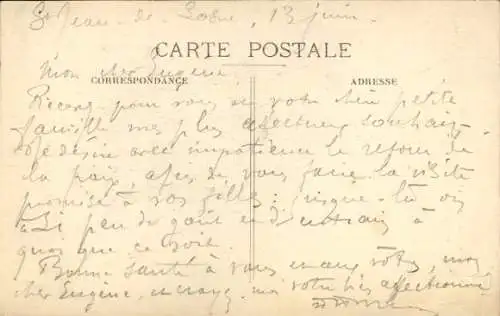 St Jean-de-Losne, 13 juin.
CARTE POSTALE
Mon cher Eugène,
CORRESPONDANCE
ADRESSE
pour vous et votre chère petite
famille mes plus affectueux souhaits.
Je désire avec impatience le retour de
la paix afin de vous faire la visite
promise à vos filles; jusque-là on
a si peu de goût et d'entrain à
quoi que ce soit.
Bonne santé à vous et aux vôtres, mon
cher Eugène, et croyez-moi votre très affectionné